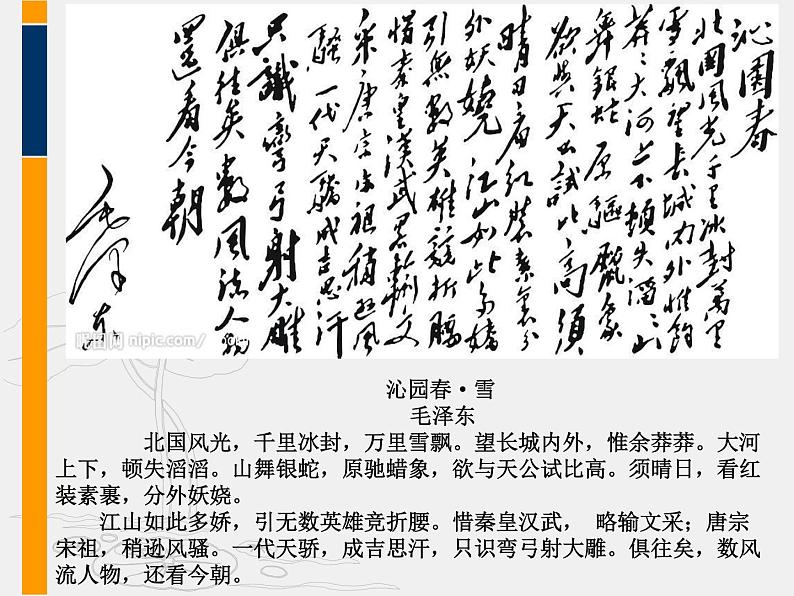 沁園春
北國風光千里冰封萬里
雪飄望長城内外惟餘
莽〻大河上下頓失滔〻山
舞銀蛇原驅臘象
欲與天公試比高須
晴日看紅裝素裹分
外妖嬈江山如此多嬌
引無數英雄競折腰
惜秦皇漢武略輸文
采唐宗宋祖稍遜風
騷一代天驕成吉思汗
只識彎弓射大雕
俱往矣數風流人物
還看今朝
毛澤東
昵图网 nipic.com/
沁园春·雪
毛泽东
北国风光，千里冰封，万里雪飘。望长城内外，惟余莽莽。大河
上下，顿失滔滔。山舞银蛇，原驰蜡象，欲与天公试比高。须晴日，看红
装素裹，分外妖娆。
江山如此多娇，引无数英雄竞折腰。惜秦皇汉武， 略输文采；唐宗
宋祖，稍逊风骚。一代天骄，成吉思汗，只识弯弓射大雕。俱往矣，数风
流人物，还看今朝。